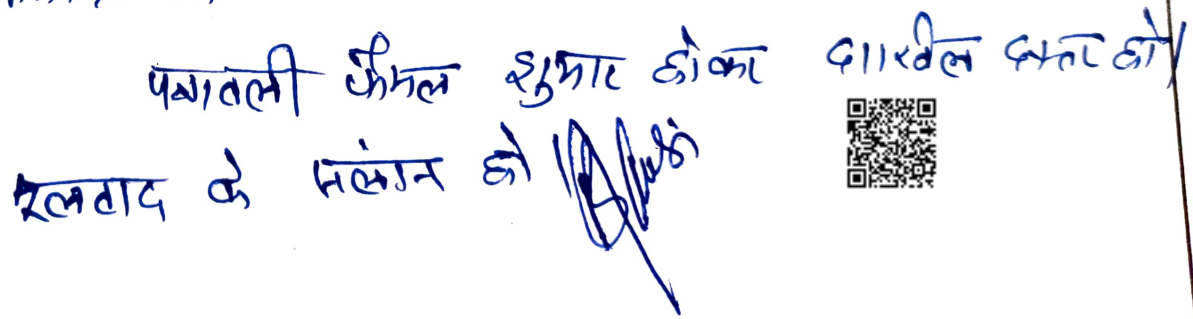 पत्रावली फैसल शुमार होकर दाखिल दफ्तर हो।
मूलवाद के संलग्न हो